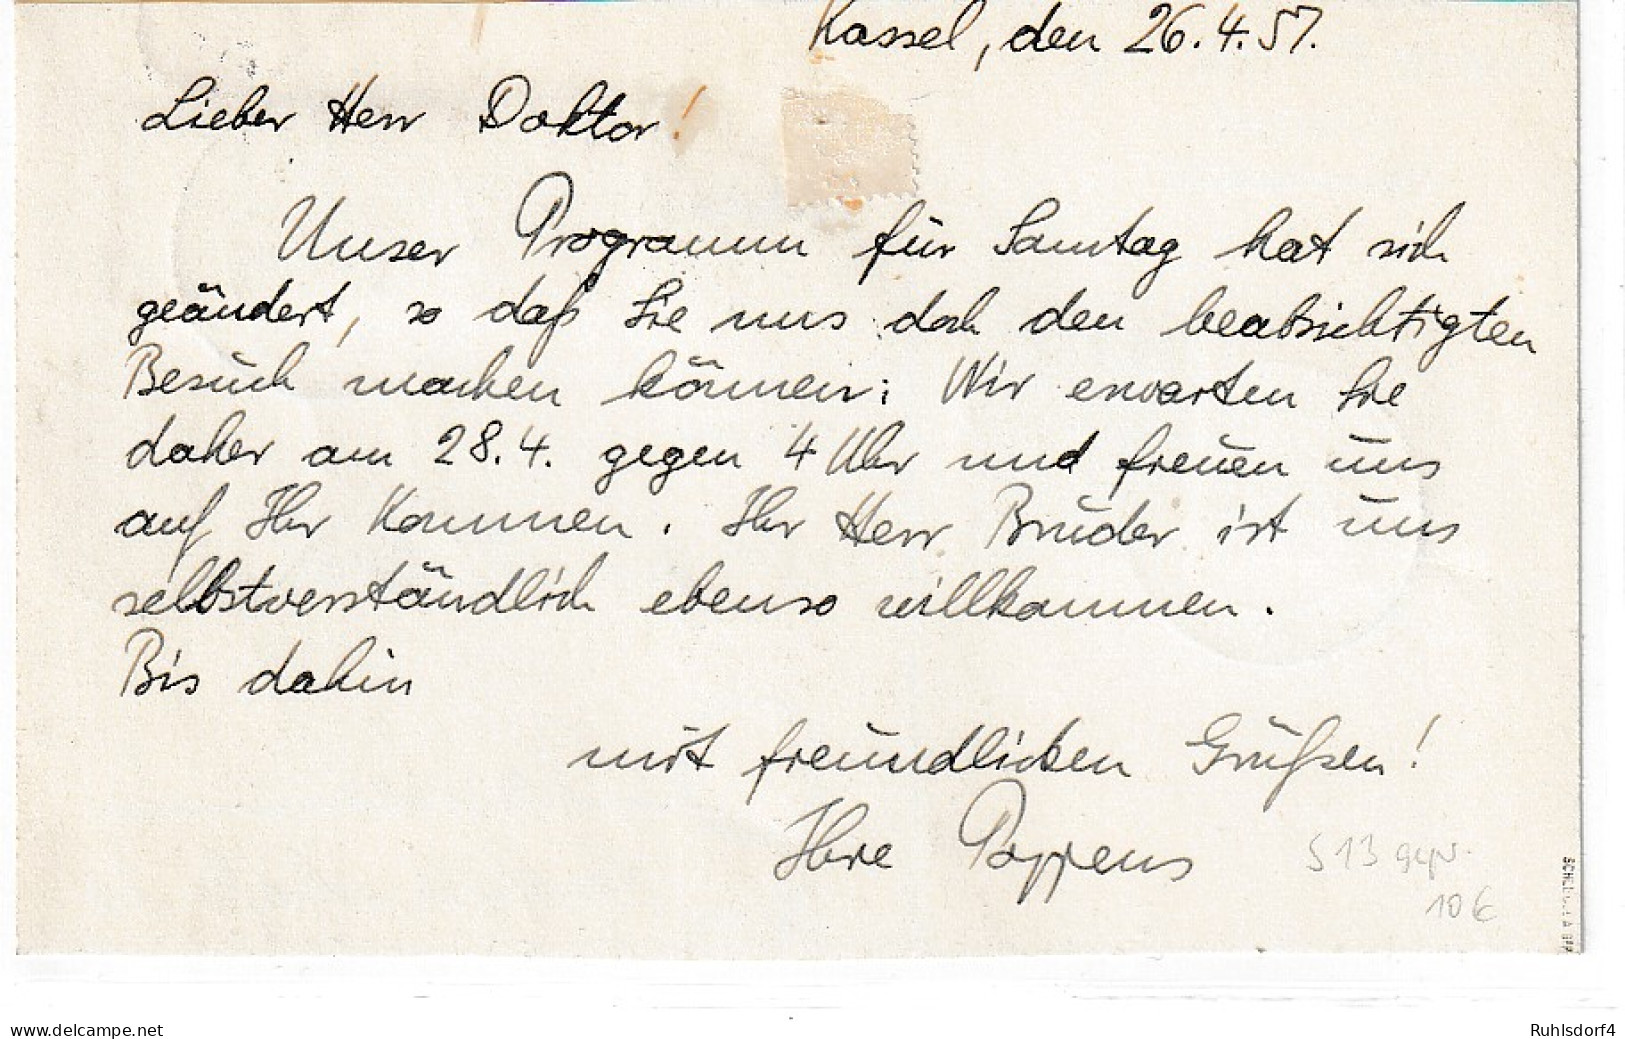 Kassel, den 26.4.57.
Lieber Herr Doktor!
Unser Programm für Samtag hat sich
geändert, so daß Sie uns doch den beabsichtigten
Besuch machen können: Wir erwarten Sie
daher am 28.4. gegen 4 Uhr und freuen uns
auf Ihr Kommen. Ihr Herr Bruder ist uns
selbstverständlich ebenso willkommen.
Bis dahin
mit freundlichen Grüßen!
Ihre Poppens
S 13 gepr.
10 €
www.delcampe.net
Ruhlsdorf4